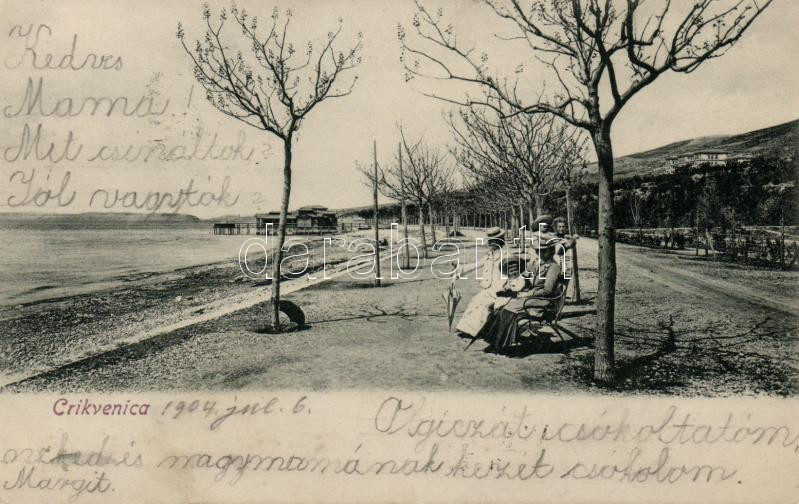 Kedves
Mama!
Mit csináltok?
Jól vagytok?
darabanth.com
Crikvenica 1904 júl. 6.
Olgiczát icsókoltatóm,
neked és nagymamának kezét csókolom.
Margit.